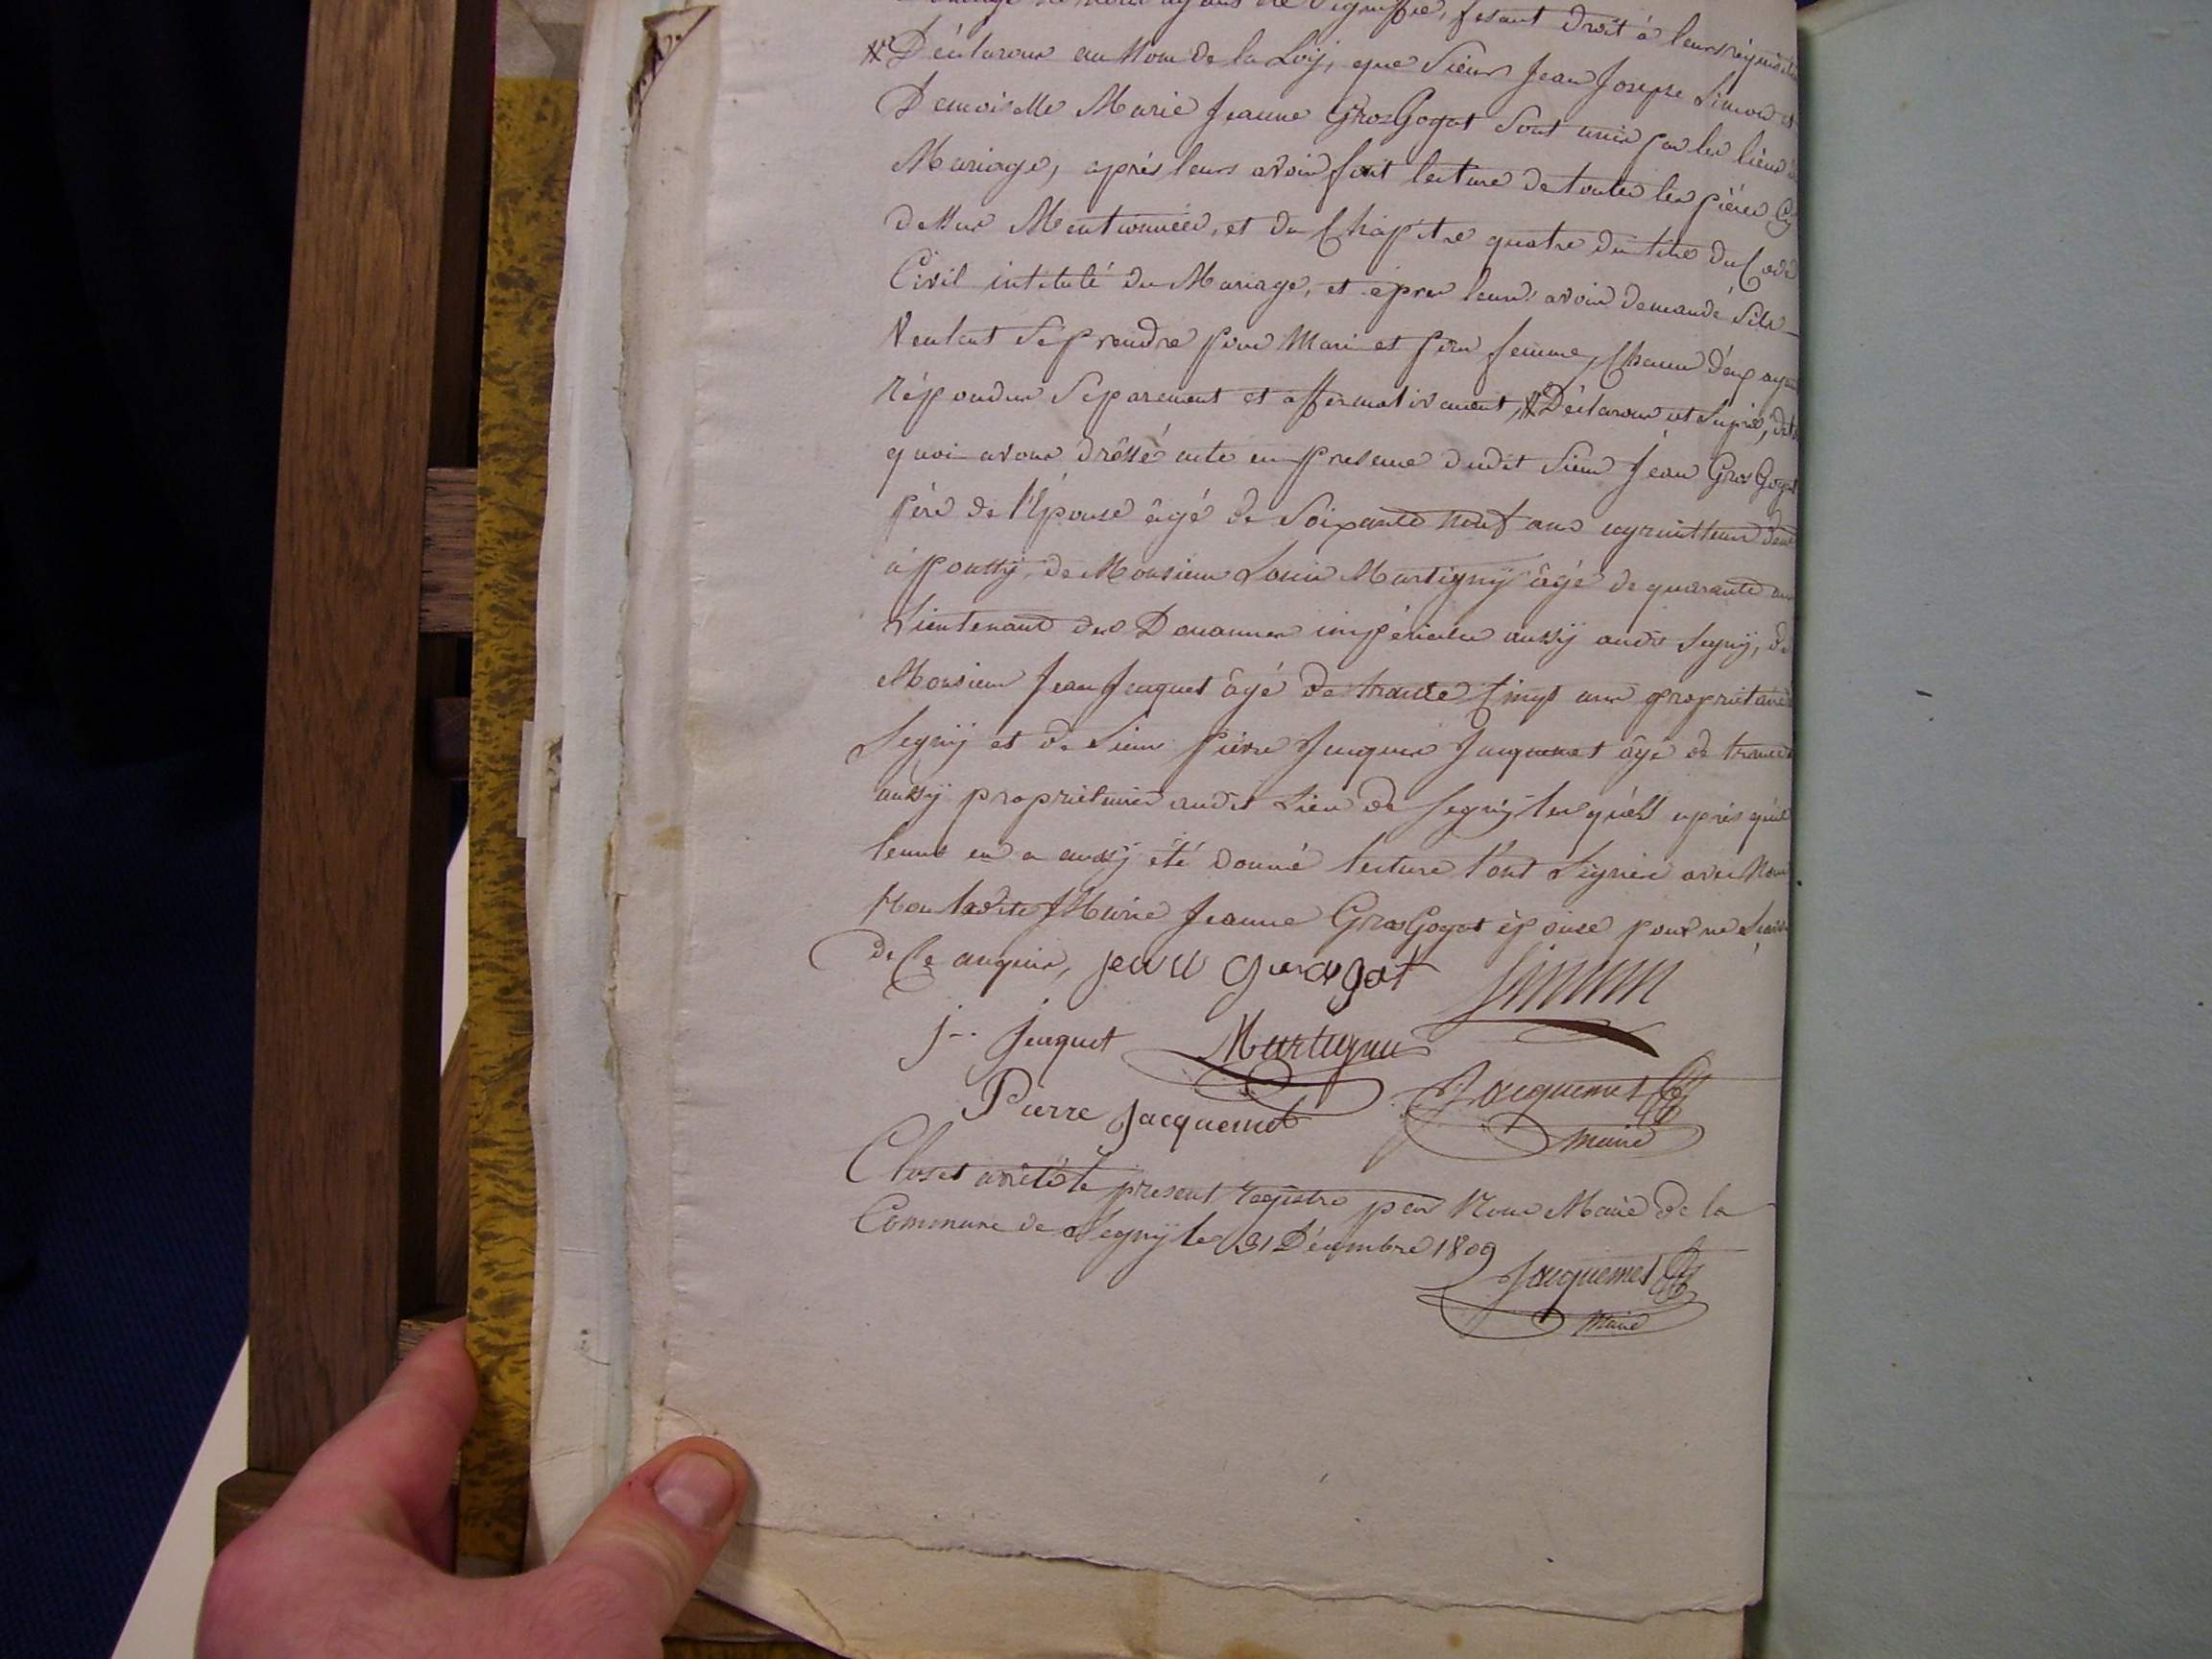 fesant droit à leurs réquisition
Déclarons au Nom de la Loij, que Sieur Jean Joseph Simon et
Demoiselle Marie Jeanne GrosGogat Sont unis par les liens
Mariage, aprés leurs avoir fait lecture de toutes les pièces Cy
dessus Mentionnées, et du Chapitre quatre du titre du Code
Civil intitulé du Mariage, et àpres leurs avoir demandé Sils
Veulent Se prendre pour Mari et pour femme, Chacun d'eux ayan
répondus Séparement et affirmativement, Déclarons ut Supra, de
quoi avons dréssé acte en presence dudit Sieur Jean GrosGogat
pére de l'Epouse âgé de Soixante neuf ans agriculteur dem
à pouttÿ, de Monsieur Louis Martignÿ âgé de quarante ans
Lieutenant des Douannes impériales aussÿ audit Segnÿ, de
Monsieur Jean Jacquet âgé de trante Cinq ans propriétaire
Segnÿ et de Sieur Piérre Jacques Jacquemet âgé de trante
aussÿ propriétaire audit Lieu de Segnÿ lesquéls aprés qu'il
leurs en a aussÿ été donné lecture l'ont Signés avec Nous
Non ladite Marie Jeanne GrosGogat épouse pour ne Savoir
de Ce anquise, jean grosgat Simon
j.. jacquet Martigny
Pierre Jacquemet Jacquemet
Maire
Clos et arrété le présent registre par Nous Maire de la
Commune de Segnÿ le 31 Décembre 1809
Jacquemet
Maire